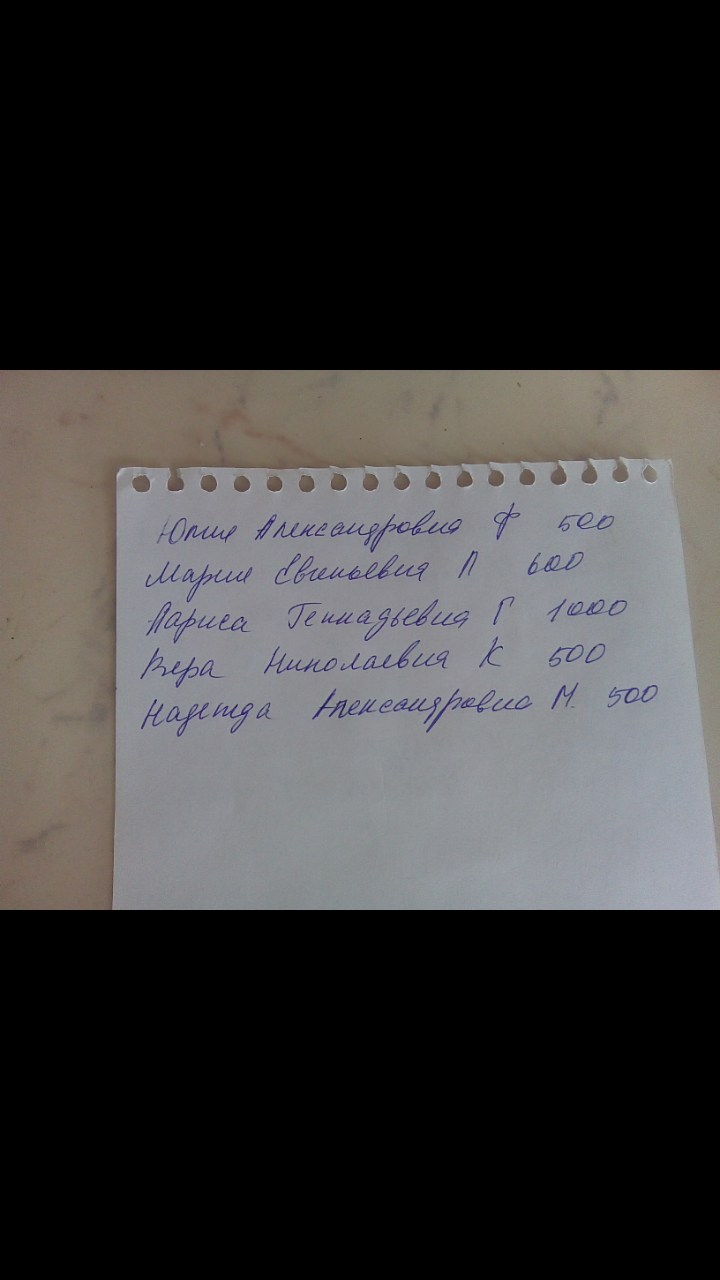 Юлия Александровна Ф 500
Мария Евгеньевна Л 600
Лариса Геннадьевна Г 1000
Вера Николаевна К 500
Надежда Александровна М. 500